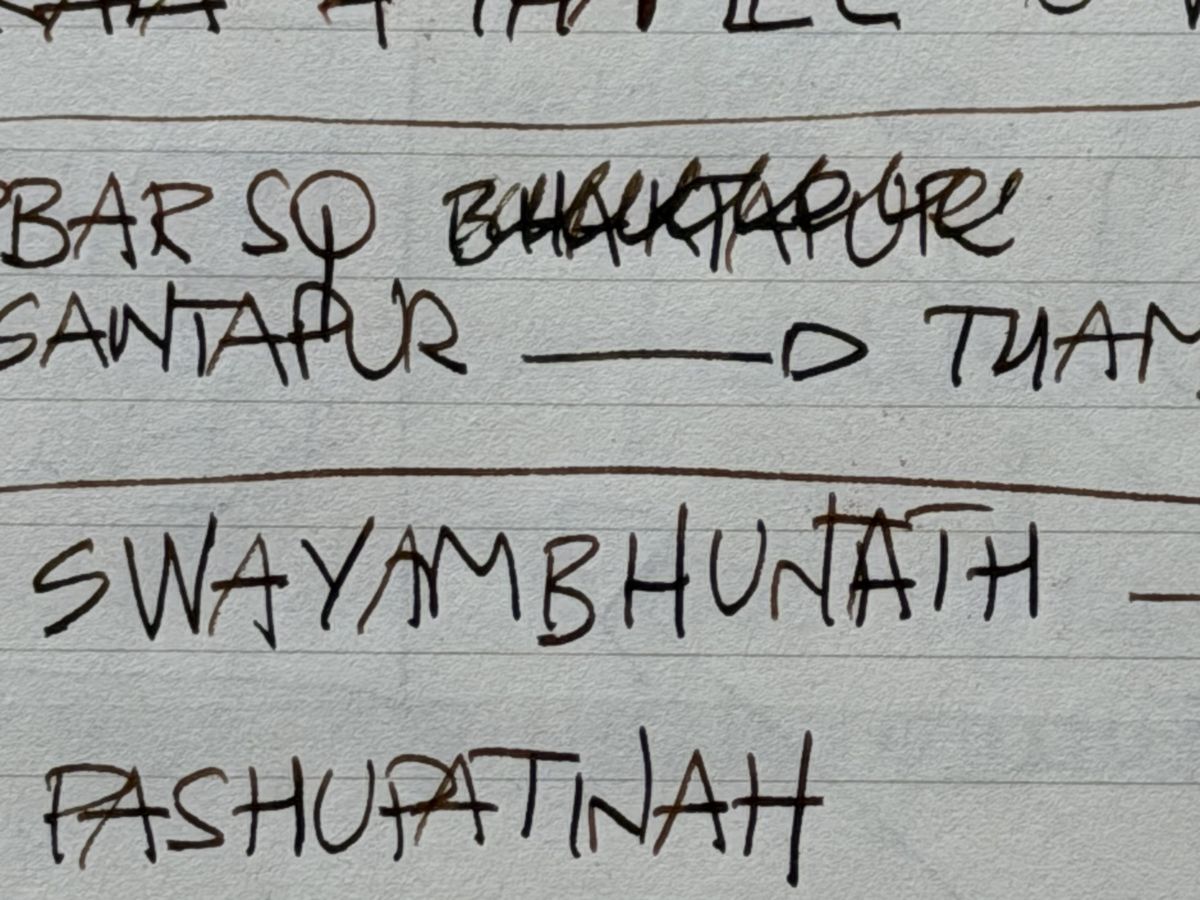 BAR SQ BHAKTAPUR
SANTAPUR ——▷ THAM
SWAYAMBHUNATH —
PASHUPATINAH